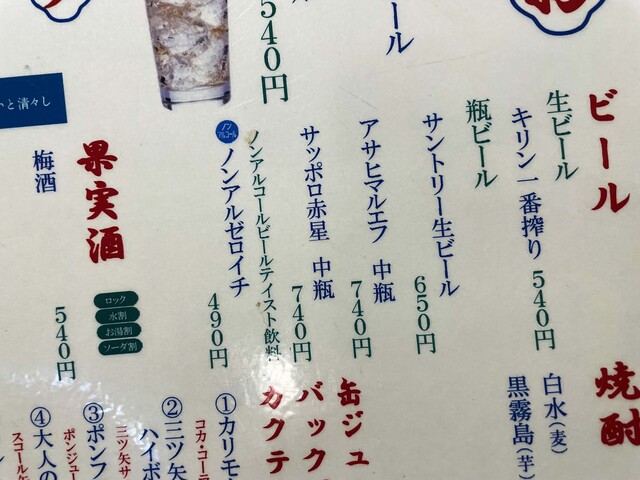 ビール
生ビール
キリン一番搾り 540円
瓶ビール
サントリー生ビール 650円
アサヒマルエフ 中瓶 740円
サッポロ赤星 中瓶 740円
ノンアルコールビールテイスト飲料
ノンアルコール
ノンアルゼロイチ 490円
ール
540円
と清々し
果実酒
ロック
水割
お湯割
ソーダ割
梅酒 540円
焼酎
白水(麦)
黒霧島(芋)
缶ジュ
バック
カクテ
①カリモ
コカ・コーラ
②三ツ矢
ハイボ
三ツ矢サ
③ポンフ
ポンジュー
④大人の
スコール